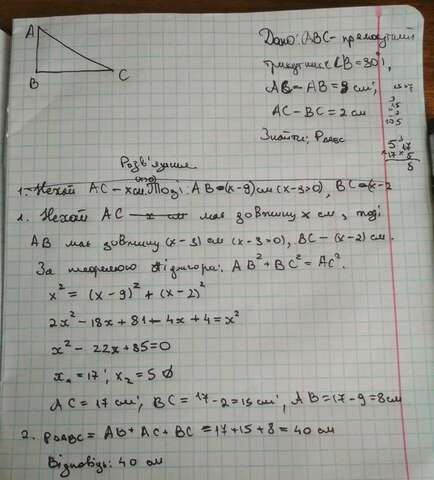 A
B
C
Дано: ABC - прямокутний
трикутник (∠B=90°),
AC - AB = 9 см,
AC - BC = 2 см
Знайти: P
Розв'язання
1. Нехай AC - x см. Тоді: AB = (x-9) см (x-9>0), BC = (x-2
1. Нехай AC має довжину x см, тоді
AB має довжину (x-9) см (x-9>0), BC - (x-2) см.
За теоремою Піфагора: AB² + BC² = AC².
x² = (x-9)² + (x-2)²
2x² - 18x + 81 - 4x + 4 = x²
x² - 22x + 85 = 0
x₁ = 17; x₂ = 5 ∅
AC = 17 см; BC = 17-2 = 15 см; AB = 17-9 = 8 см
2. PΔABC = AB + AC + BC = 17+15+8 = 40 см
Відповідь: 40 см